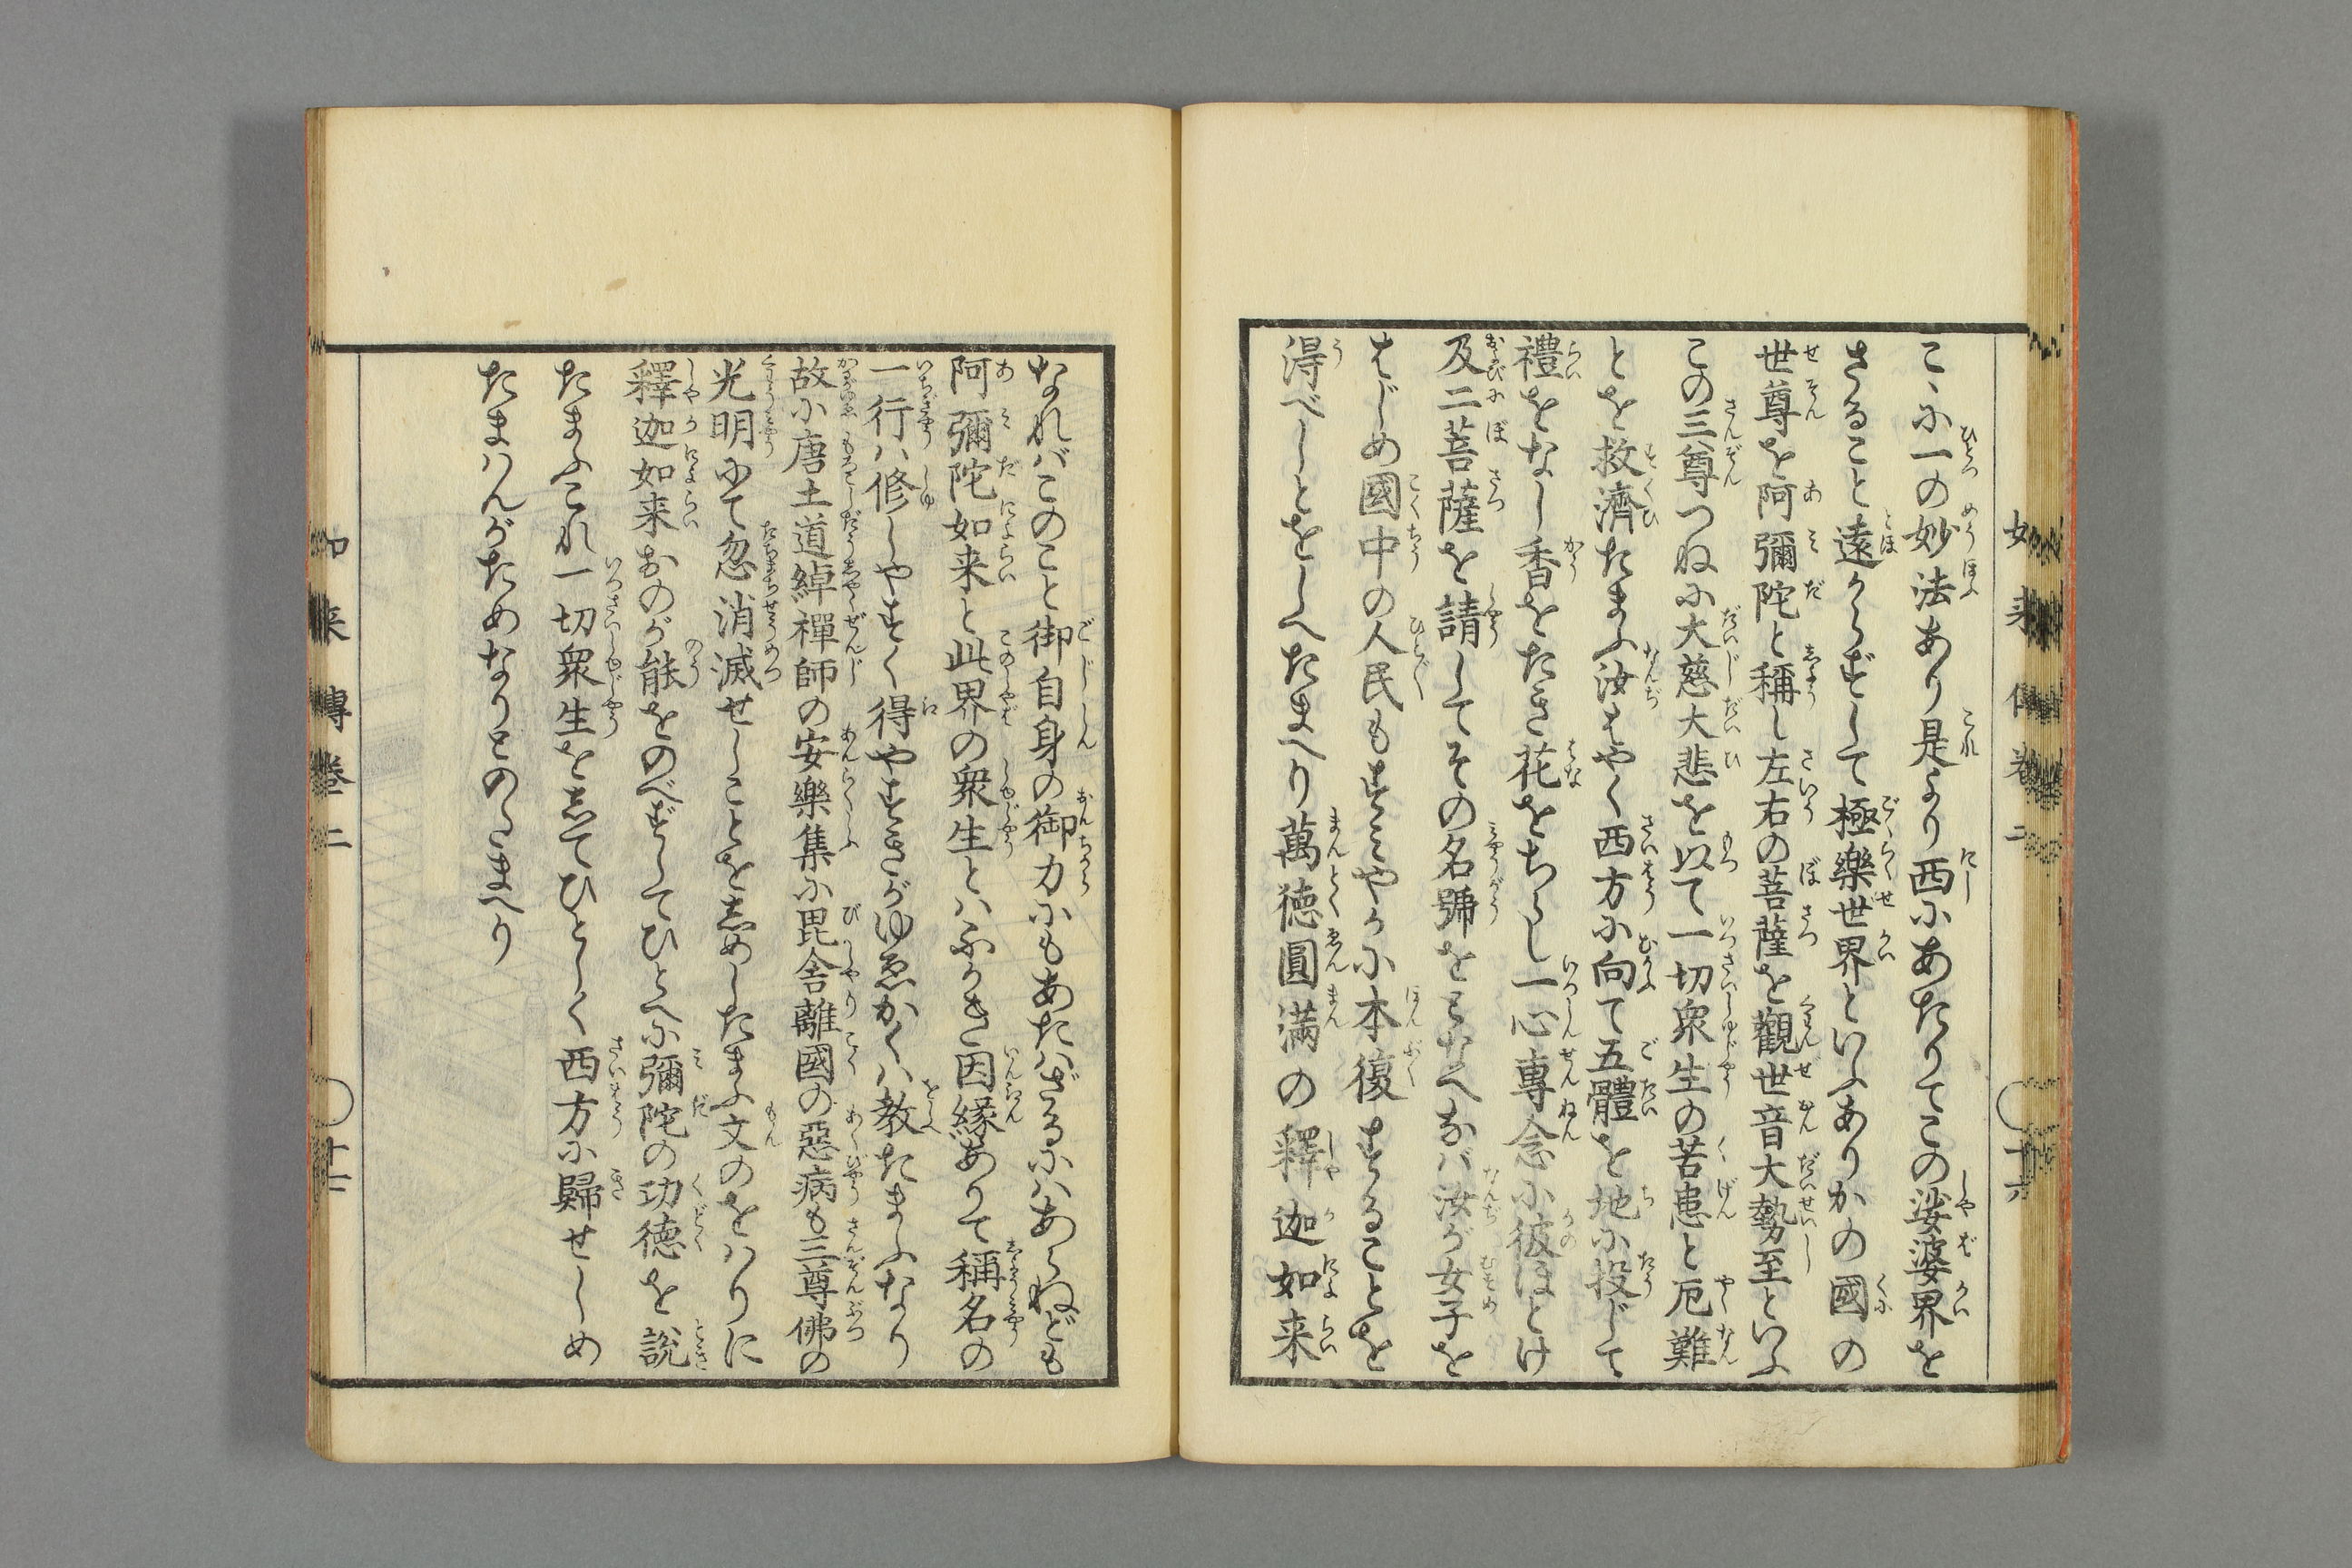 こゝに一の妙法あり是より西にあたりてこの娑婆界を
さること遠からずして極樂世界といふありかの國の
世尊を阿彌陀と稱し左右の菩薩を觀世音大勢至といふ
この三尊つねに大慈大悲を以て一切衆生の苦患と厄難
とを救濟たまふ汝はやく西方に向て五體を地に投じて
禮をなし香をたき花をちらし一心專念に彼ほとけ
及二菩薩を請してその名號をとなへなバ汝が女子を
はじめ國中の人民もすミやかに本復することを
得べしとをしへたまへり萬徳圓満の釋迦如来
なれバこのこと御自身の御力にもあたハざるにハあらねども
阿彌陀如来と此界の衆生とハふかき因縁ありて稱名の
一行ハ修しやすく得やすきがゆゑかくハ教たまふなり
故に唐土道綽禪師の安樂集に毘舎離國の惡病も三尊佛の
光明にて忽消滅せしことを志めしたまふ文のをハりに
釋迦如来おのが能をのべずしてひとへに彌陀の功徳を説
たまふこれ一切衆生を志てひとしく西方に歸せしめ
たまハんがためなりとのたまへり
如来傳卷二
十二